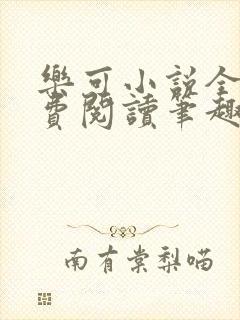 樂可小說全
費閱讀筆趣
南有棠梨喵